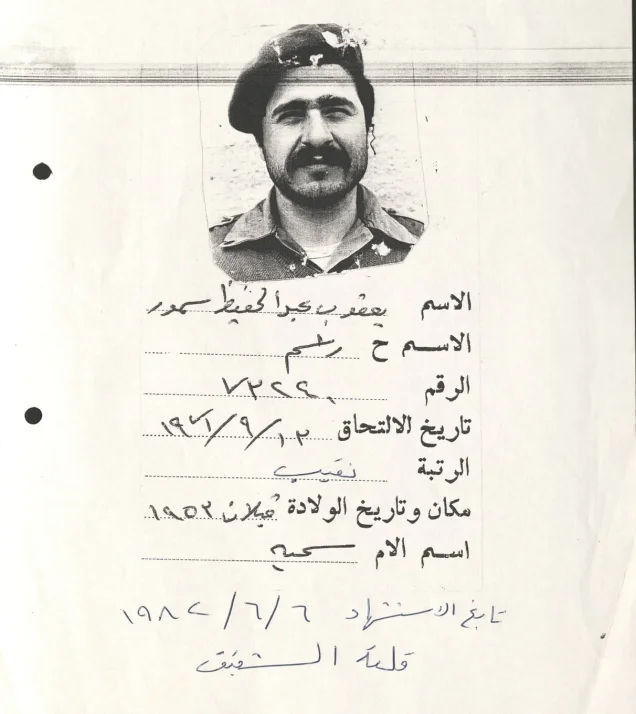 الاسم يعقوب عبد الحفيظ سمور
الاسم ح راسم
الرقم ٧٣٢٢٠
تاريخ الالتحاق ١٩٧١/٩/١٣
الرتبة نقيب
مكان وتاريخ الولادة قبلان ١٩٥٣
اسم الام سميه
تاريخ الاستشهاد ٦/٦/١٩٨٢
قلعة الشقيف